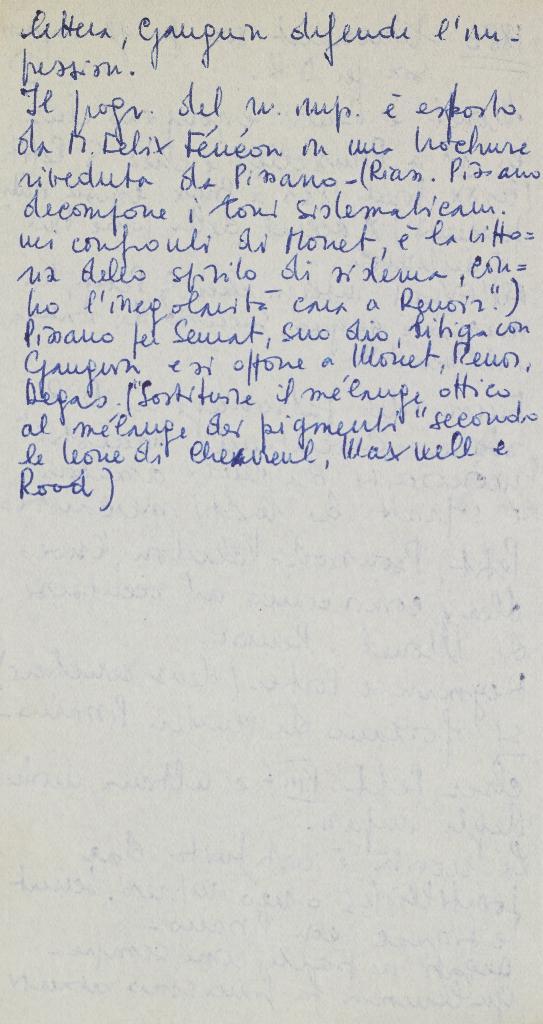 lettera, Gauguin difende l'im-
pression.
Il progr. del n. imp. è esposto
da M. Felix Fénéon in una brochure
riveduta da Pissarro - (Riass. Pissarro
decompone i toni sistematicam.
nei confronti di Monet, è la vitto-
ria dello spirito di sistema, con-
tro l'irregolarità cara a Renoir".)
Pissarro per Seurat, suo dio, litiga con
Gauguin e si oppone a Monet, Renoir,
Degas. ("Sostituire il mélange ottico
al mélange dei pigmenti" secondo
le teorie di Chevreul, Maxwell e
Rood)